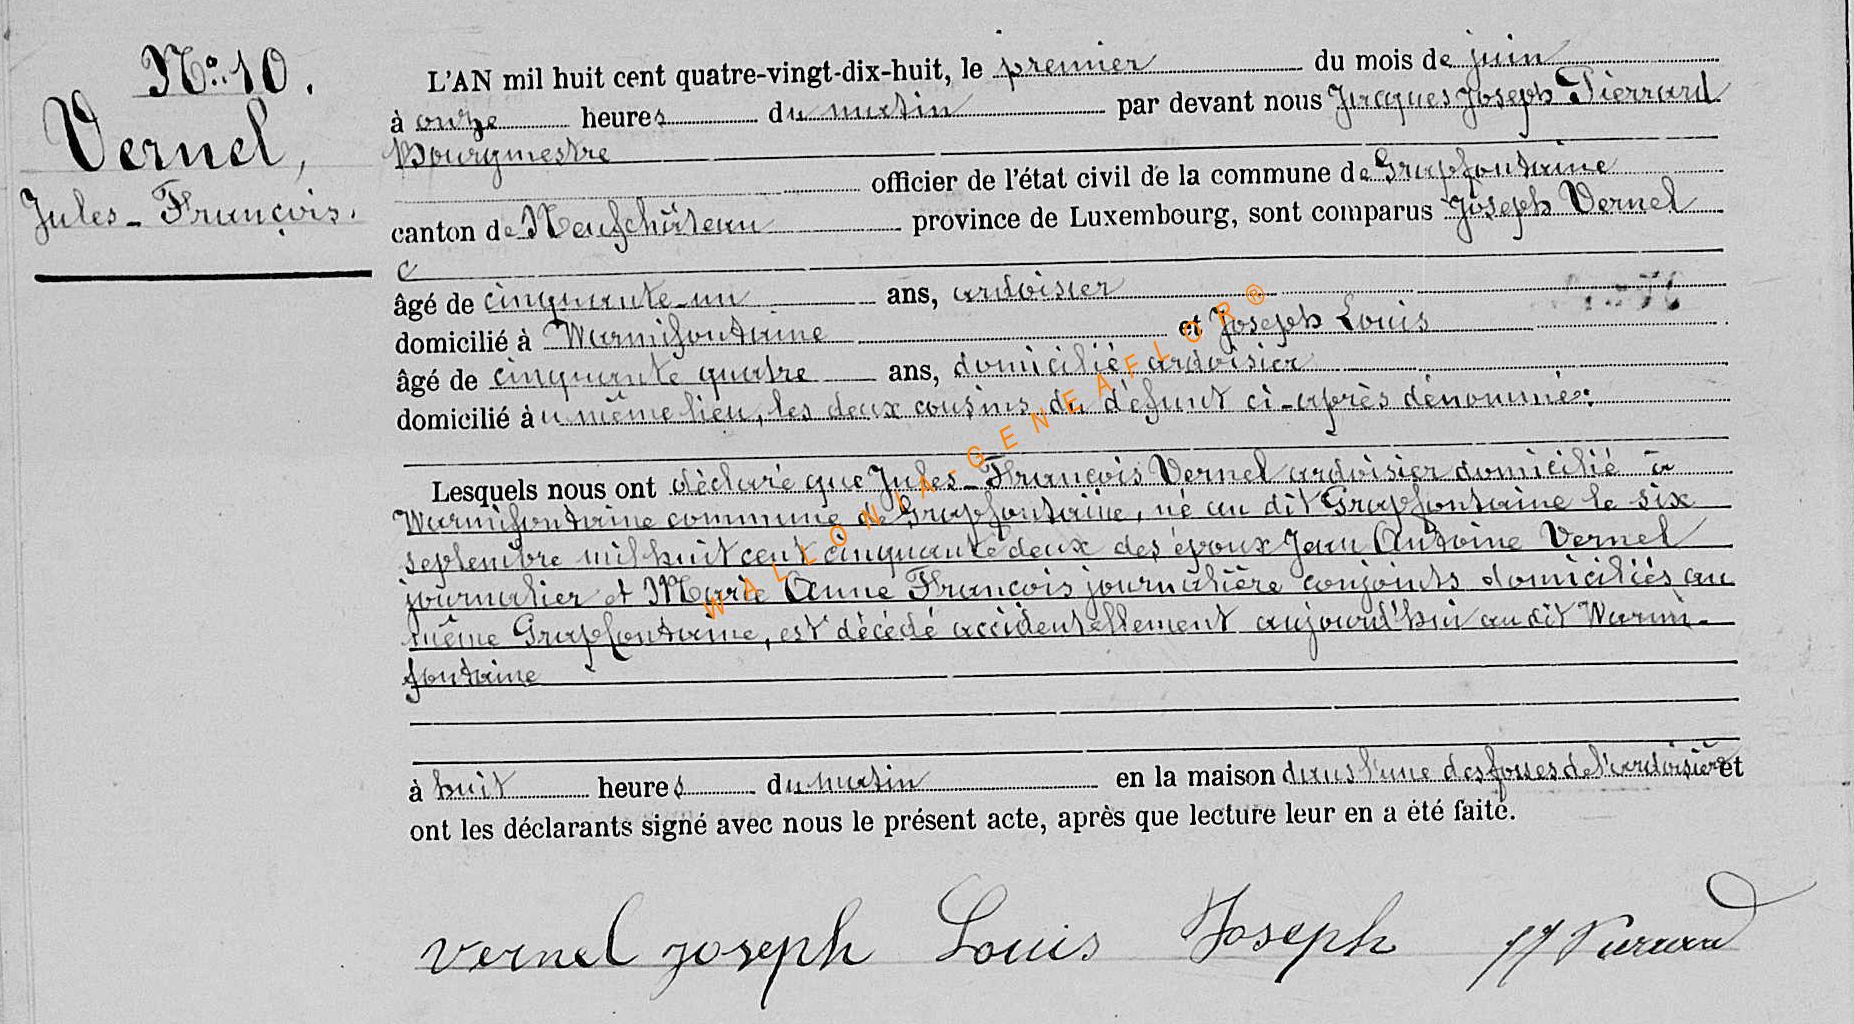 No. 10.
Vernel,
Jules-François.
L'AN mil huit cent quatre-vingt-dix-huit, le premier du mois de juin
à onze heures du matin par devant nous Jacques Joseph Pierrard
Bourgmestre
officier de l'état civil de la commune de Grapfontaine
canton de Neufchâteau province de Luxembourg, sont comparus Joseph Vernel
âgé de cinquante-un ans, ardoisier
domicilié à Warmifontaine et Joseph Louis
âgé de cinquante quatre ans, domicilié ardoisier
domicilié au même lieu, les deux cousins du défunt ci-après dénommé:
Lesquels nous ont déclaré que Jules-François Vernel ardoisier domicilié à
Warmifontaine commune de Grapfontaine, né au dit Grapfontaine le six
septembre mil huit cent cinquante deux des époux Jean Antoine Vernel
journalier et Marie Anne François journalière conjoints domiciliés au
même Grapfontaine, est décédé accidentellement aujourd'hui au dit Warmi-
fontaine
à huit heures du matin en la maison dans l'une des fosses de l'ardoisière et
ont les déclarants signé avec nous le présent acte, après que lecture leur en a été faite.
vernel joseph Louis Joseph JJ Pierrard
WALLONIA - GENEAFLOR ®